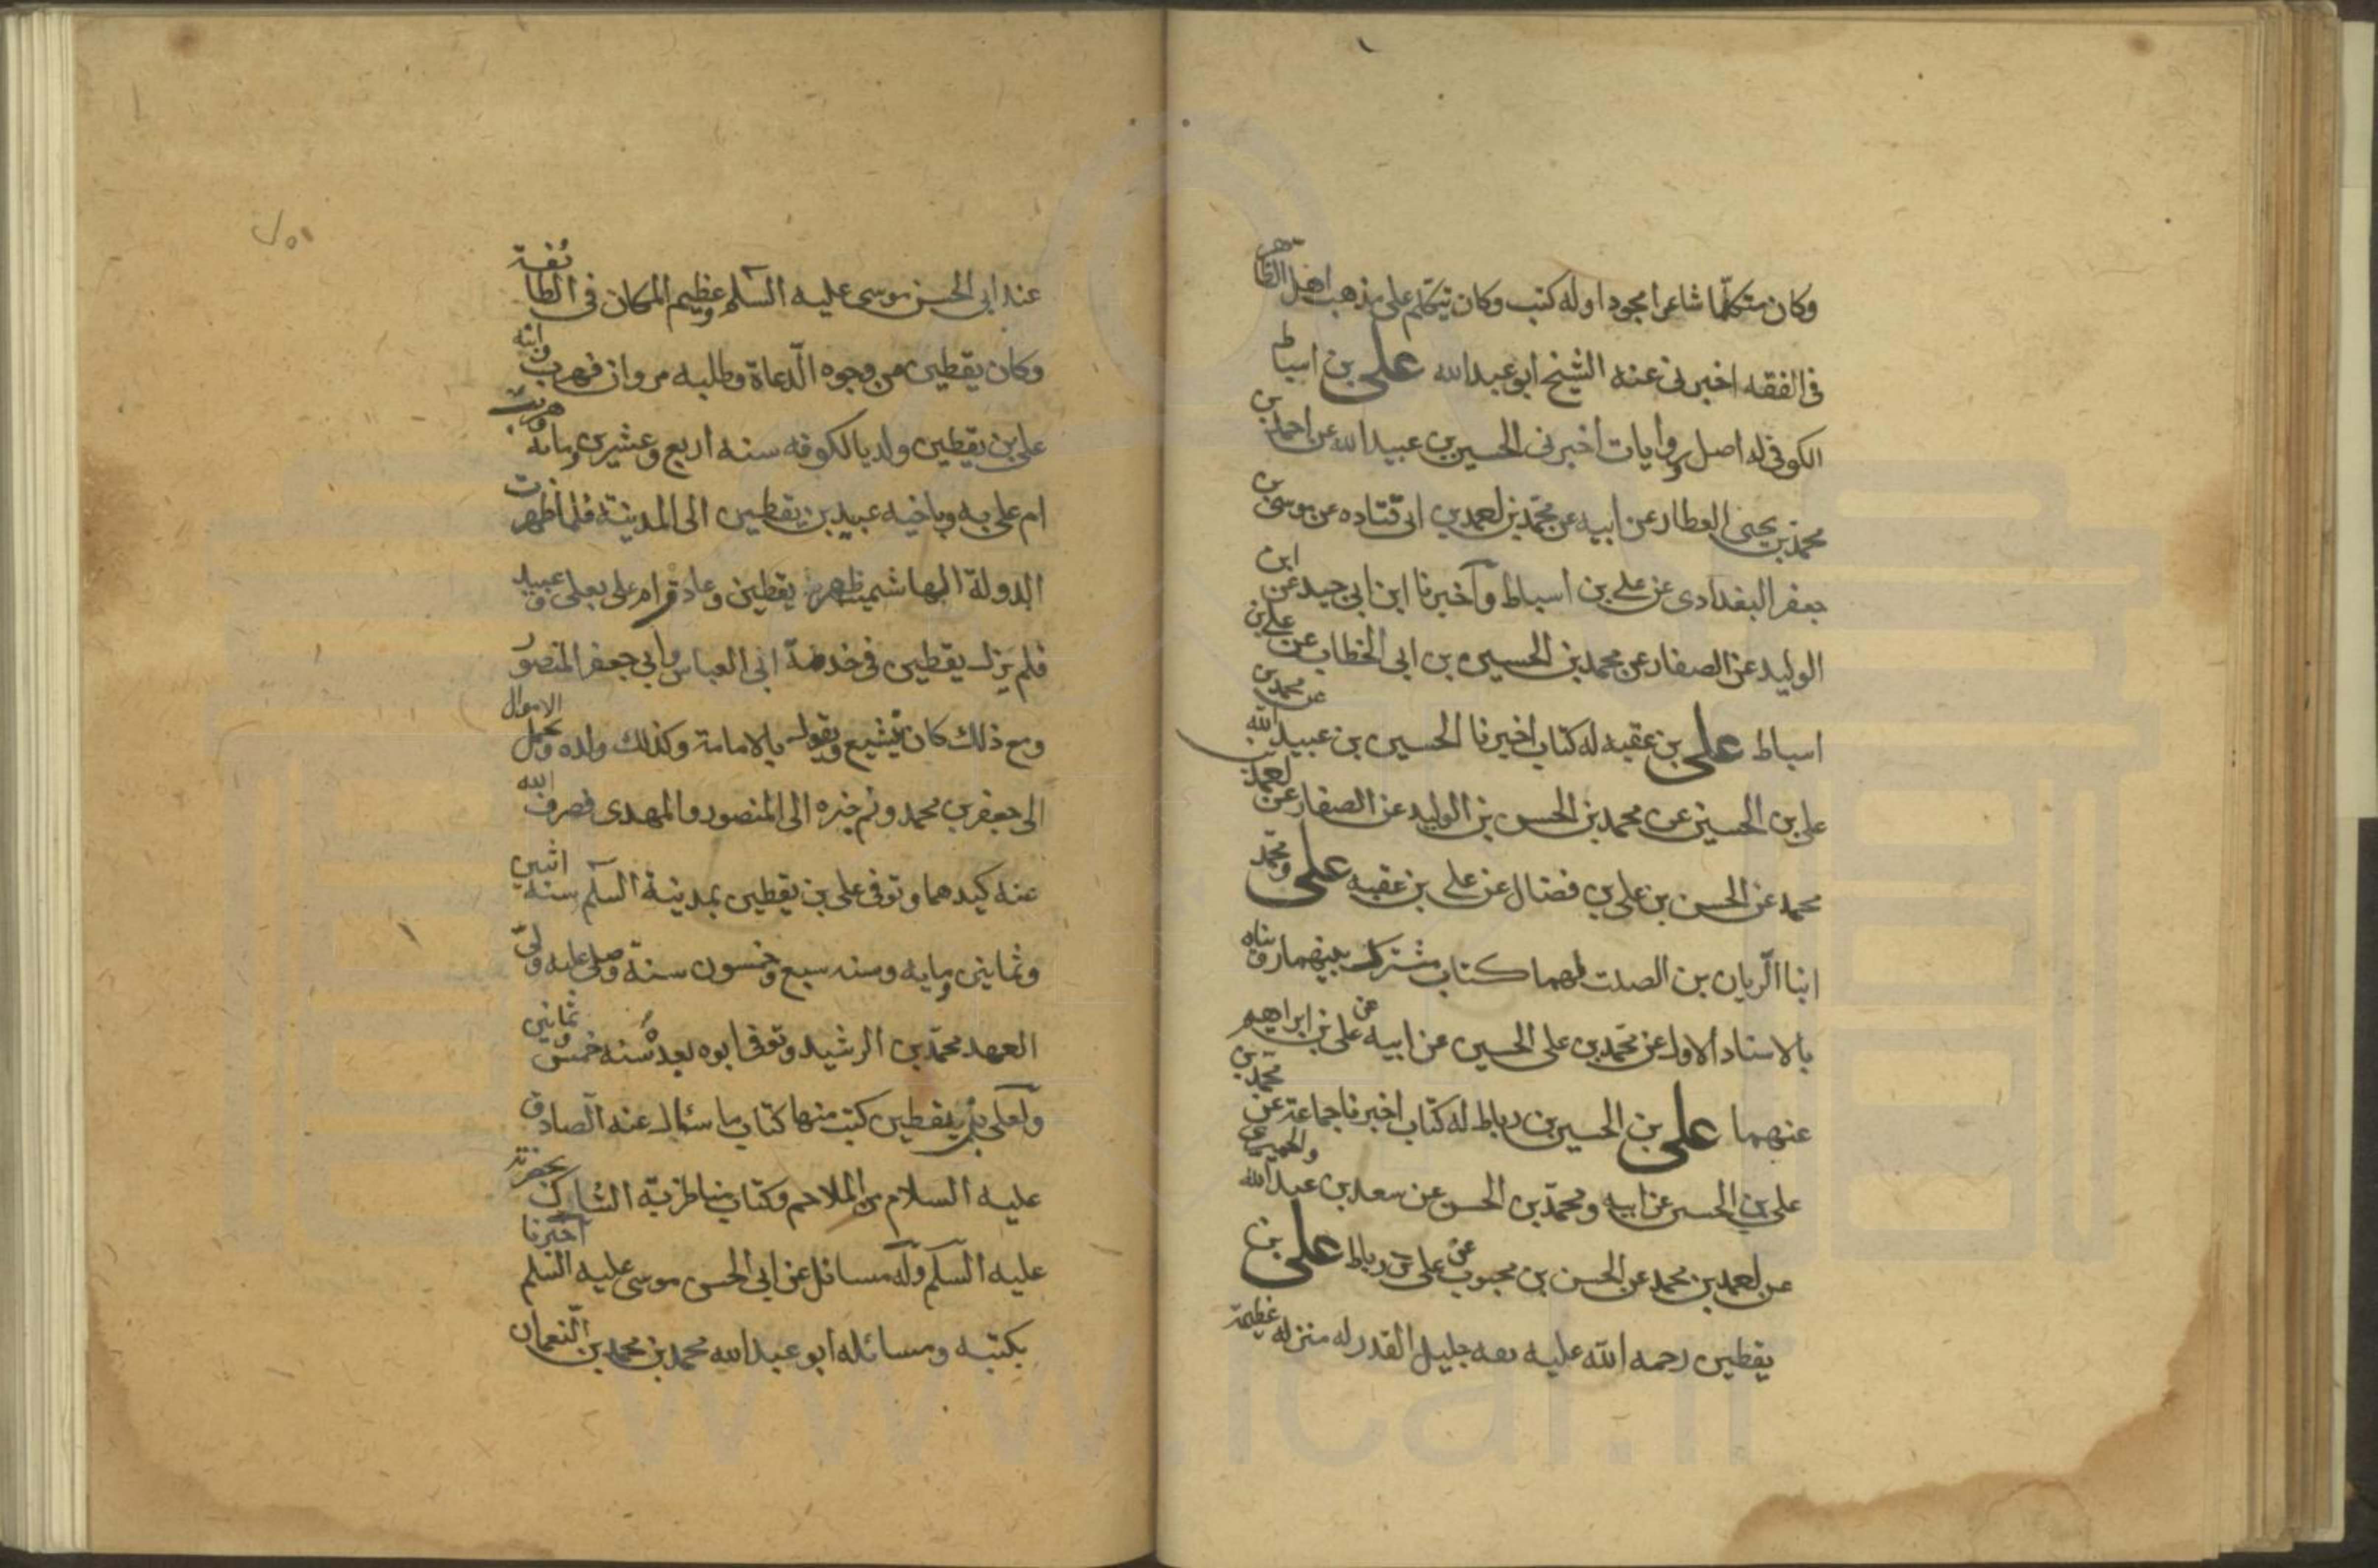 وكان متكلّما شاعرا مجودا وله كتب وكان يتكلم على مذهب اهل الظاهر
فى الفقه اخبرنى عنه الشيخ ابو عبد الله على بن اسباط
الكوفى له اصل وروايات اخبرنى الحسين بن عبيد الله عن احمد بن
محمد بن يحيى العطار عن ابيه عن محمد بن احمد بن ابى قتاده عن موسى بن
جعفر البغدادى عن على بن اسباط وآخبرنا ابن ابى جيد عن ابن
الوليد عن الصفار عن محمد بن الحسين بن ابى الخطاب عن على بن
اسباط على بن عقبه له كتاب اخبرنا الحسين بن عبيد الله عن محمد بن
على بن الحسين عن محمد بن الحسن بن الوليد عن الصفار عن احمد بن
محمد عن الحسن بن على بن فضال عن على بن عقبه على ومحمّد
ابنا الرّيان بن الصلت لهما كتاب مشترك بينهما رويناه
بالاسناد الاول عن محمّد بن على الحسين عن ابيه عن على بن ابراهيم
عنهما على بن الحسين بن رباط له كتاب اخبرنا جماعة عن محمّد بن
على بن الحسين عن ابيه ومحمّد بن الحسن عن سعد بن عبد الله والحميرى
عن احمد بن محمد عن الحسن بن محبوب عن على بن رباط على بن
يقطين رحمه الله عليه ثقه جليل القدر له منزله عظيمة
عند ابى الحسن موسى عليه السّلم وعظيم المكان فى الطائفة
وكان يقطين من وجوه الدّعاة وطلبه مروان فهرب وابنه
على بن يقطين ولد بالكوفه سنه اربع وعشرين ومايه وهربت
ام على به وباخيه عبيد بن يقطين الى المدينة فلما ظهرت
الدولة الهاشميه ظهر يقطين وعادت ام على بعلى وعبيد
فلم يزل يقطين فى خدمة ابى العباس وابى جعفر المنصور
ومع ذلك كان يتشيع ويقول بالامامة وكذلك ولده وتحمل الاموال
الى جعفر بن محمد ونم خبره الى المنصور والمهدى فصرف الله
عنه كيدهما وتوفى على بن يقطين بمدينة السّلم سنه اثنين
وثمانين ومايه وسنه سبع وخمسون سنة وصلى عليه ولىّ
العهد محمّد بن الرشيد وتوفى ابوه بعده سنه خمس وثمانين
ولعلى بن يقطين كتب منها كتاب ما سئال عنه الصّادق
عليه السلام من الملاحم وكتاب مناظرته الشاك بحضرته
عليه السّلم وله مسائل عن ابى الحسن موسى عليه السلم آخبرنا
بكتبه ومسائله ابو عبد الله محمد بن محمد بن النّعمان